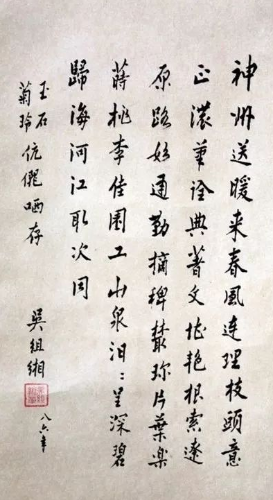 神州送暖来春風連理枝頭意
正濃筆詮典著文花艳根索遼
原路始通勤摘稗叢珎片葉樂
蒔桃李佳園工山泉汩〻呈深碧
歸海河江取次同
玉石
菊玲伉儷哂存
吳组缃
八六年